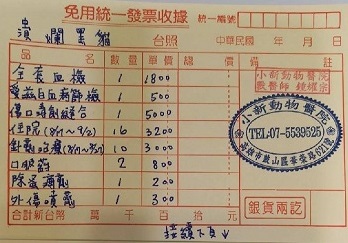 免用統一發票收據
統一編號
潰爛黑貓 台照 中華民國 年 月 日
品名 數量 單價 總價 備註
全套血檢 1 1800
1 500
傷口清創縫合 1 5000
住院(8/1~9/2) 16 3200
10 3000
口服藥 2 800
1 200
外傷噴劑 1 300
小新動物醫院
獸醫師 鍾耀宗
小新動物醫院
TEL:07-5539525
高雄市鼓山區華榮路621號
合計新台幣 萬 千 百 拾 元
銀貨兩訖
接續下頁↓